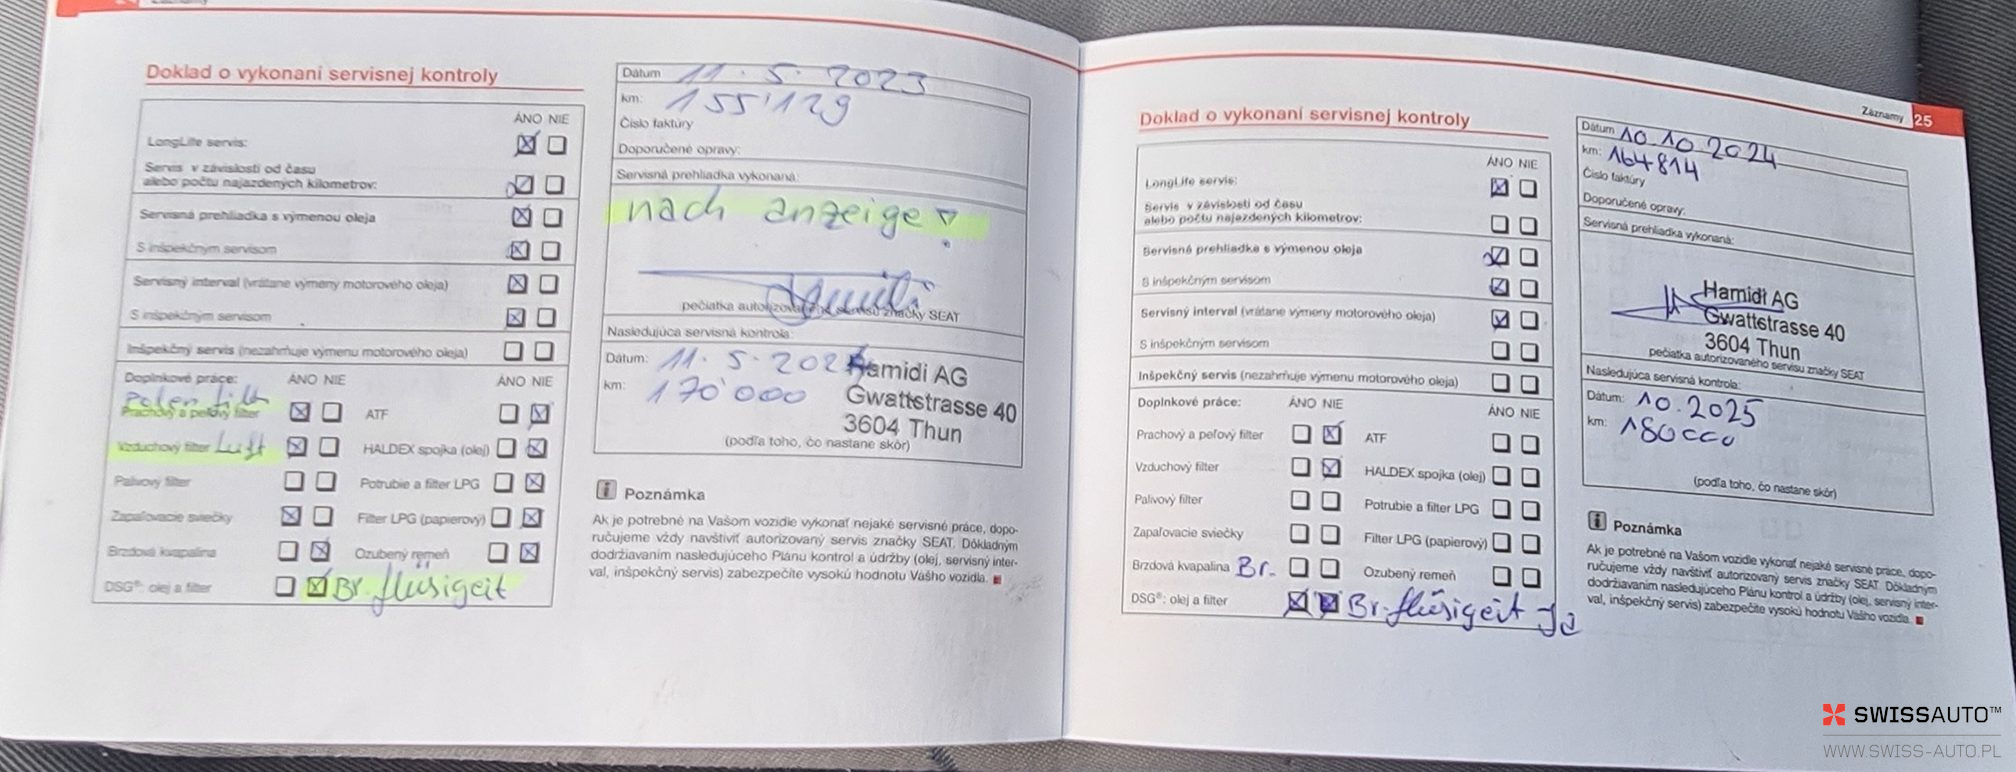 Záznamy
Doklad o vykonaní servisnej kontroly
ÁNO NIE
LongLife servis:
Servis v závislosti od času
alebo počtu najazdených kilometrov:
Servisná prehliadka s výmenou oleja
S inšpekčným servisom
Servisný interval (vrátane výmeny motorového oleja)
S inšpekčným servisom
Inšpekčný servis (nezahrňuje výmenu motorového oleja)
Doplnkové práce: ÁNO NIE ÁNO NIE
Polen
Prachový a peľový filter ATF
Vzduchový filter Luft HALDEX spojka (olej)
Palivový filter Potrubie a filter LPG
Zapaľovacie sviečky Filter LPG (papierový)
Brzdová kvapalina Ozubený remeň
DSG®: olej a filter Br. flüsigeit
Dátum 11.5.2023
km: 155'129
Číslo faktúry
Doporučené opravy:
Servisná prehliadka vykonaná:
nach anzeige !
pečiatka autorizovaného servisu značky SEAT
Nasledujúca servisná kontrola:
Dátum: 11.5.2024
km: 170'000
Hamidi AG
Gwattstrasse 40
3604 Thun
(podľa toho, čo nastane skôr)
i Poznámka
Ak je potrebné na Vašom vozidle vykonať nejaké servisné práce, dopo-
ručujeme vždy navštíviť autorizovaný servis značky SEAT. Dôkladným
dodržiavaním nasledujúceho Plánu kontrol a údržby (olej, servisný inter-
val, inšpekčný servis) zabezpečíte vysokú hodnotu Vášho vozidla.
Záznamy 25
Doklad o vykonaní servisnej kontroly
ÁNO NIE
LongLife servis:
Servis v závislosti od času
alebo počtu najazdených kilometrov:
Servisná prehliadka s výmenou oleja
S inšpekčným servisom
Servisný interval (vrátane výmeny motorového oleja)
S inšpekčným servisom
Inšpekčný servis (nezahrňuje výmenu motorového oleja)
Doplnkové práce: ÁNO NIE ÁNO NIE
Prachový a peľový filter ATF
Vzduchový filter HALDEX spojka (olej)
Palivový filter Potrubie a filter LPG
Zapaľovacie sviečky Filter LPG (papierový)
Brzdová kvapalina Br. Ozubený remeň
DSG®: olej a filter Br. flüsigeit Ja
Dátum 10.10.2024
km: 164814
Číslo faktúry
Doporučené opravy:
Servisná prehliadka vykonaná:
Hamidi AG
Gwattstrasse 40
3604 Thun
pečiatka autorizovaného servisu značky SEAT
Nasledujúca servisná kontrola:
Dátum: 10.2025
km: 180000
(podľa toho, čo nastane skôr)
i Poznámka
Ak je potrebné na Vašom vozidle vykonať nejaké servisné práce, dopo-
ručujeme vždy navštíviť autorizovaný servis značky SEAT. Dôkladným
dodržiavaním nasledujúceho Plánu kontrol a údržby (olej, servisný inter-
val, inšpekčný servis) zabezpečíte vysokú hodnotu Vášho vozidla.
SWISSAUTO™
WWW.SWISS-AUTO.PL